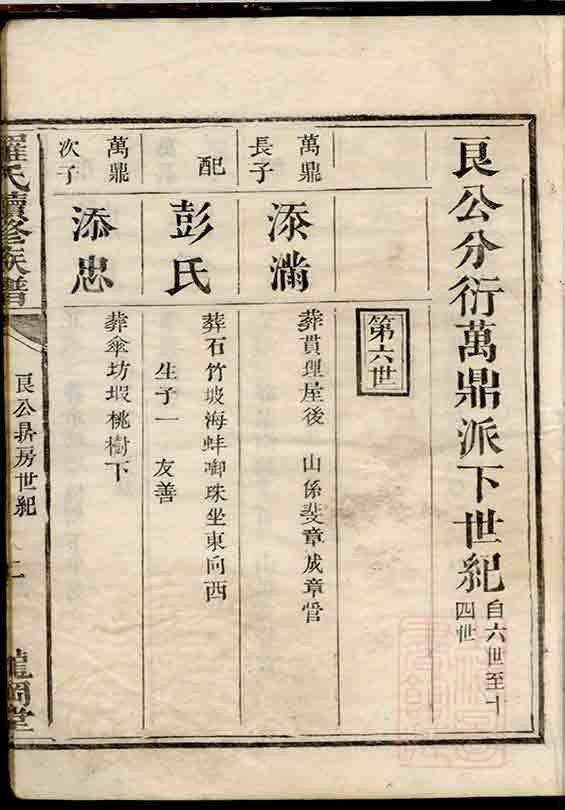 艮公分衍萬鼎派下世紀
自六世至十
四世
第六世
萬鼎
長子
添滿
葬貫理屋後 山係斐章成章管
配
彭氏
葬石竹坡海蚌啣珠坐東向西
生子一 友善
萬鼎
次子
添忠
葬傘坊塅桃樹下
羅氏續修族譜
艮公鼎房世紀
二
龍岡堂